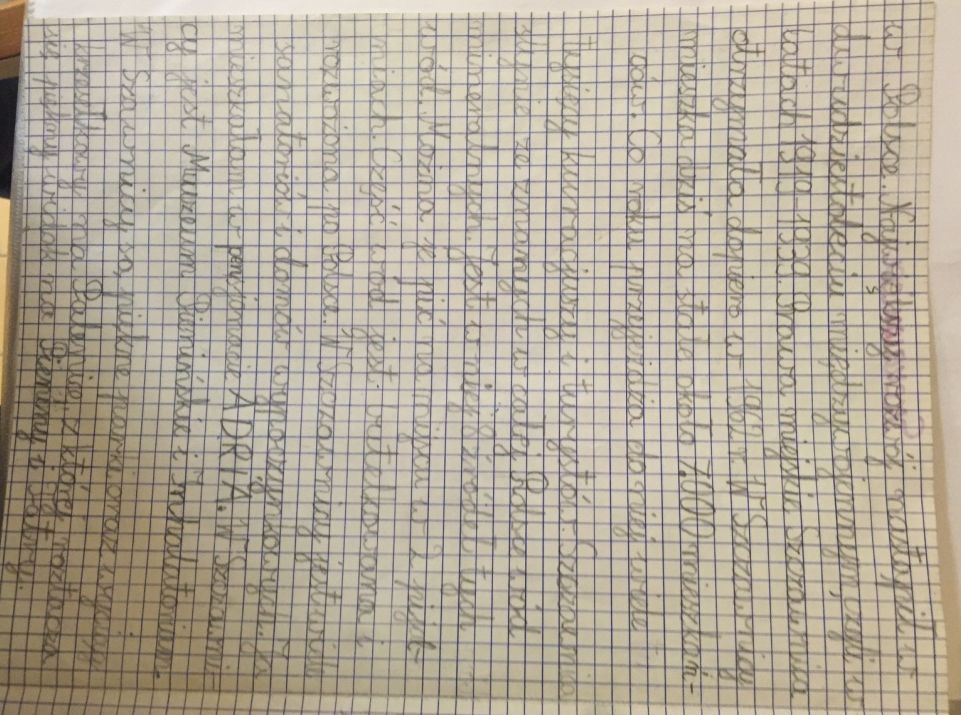 w Polsce. Najświetniejszy rozwój nastąpił w
dwudziestoleciu międzywojennym, czyli w
latach 1919-1939. Prawa miejskie Szczawnica
otrzymała dopiero w 1962 r. W Szczawnicy
mieszka dziś na stałe około 7.000 mieszkań-
ców. Co roku przyjeżdża do niej wiele
tysięcy kuracjuszy i turystów. Szczawnica
słynie ze znanych w całej Polsce wód
mineralnych. Jest w niej 8 źródeł tych
wód. Można je pić na miejscu w 2 pijal-
niach. Część wód jest butelkowana i
rozwożona po Polsce. W Szczawnicy jest wiele
sanatoriów i domów wypoczynkowych. Ja
mieszkałam w pensjonacie ADRIA. W Szczawni-
cy jest Muzeum Pienińskie i Inhalatorium.
W Szczawnicy są piękne parki oraz wyciąg
krzesełkowy na Palenicę, z której roztacza
się piękny widok na Pieniny i Tatry.